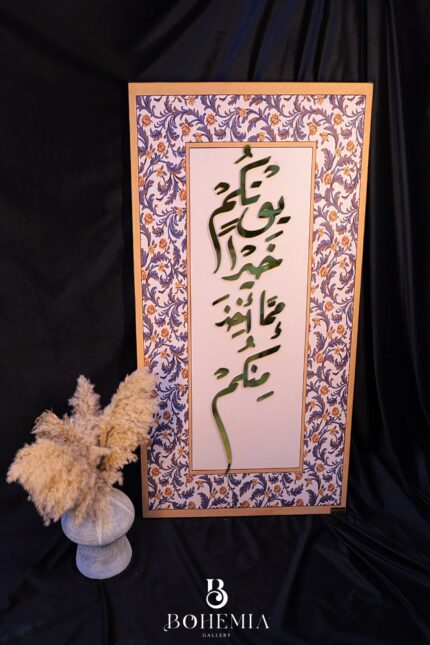 يُؤْتِكُمْ
خَيْرًا
مِمَّا أُخِذَ
مِنْكُمْ
B
BOHEMIA
GALLERY